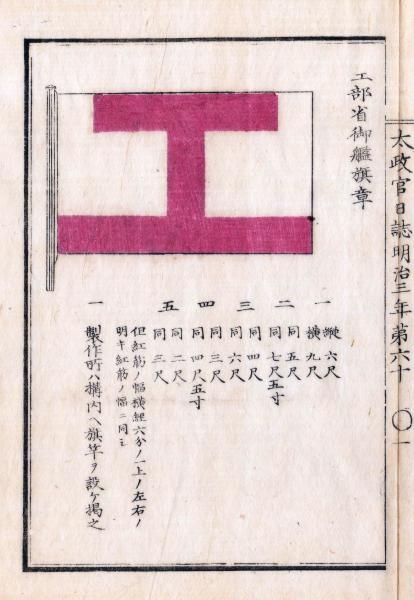 太政官日誌明治三年第六十 〇一
工部省御艦旗章
一 縱六尺
横九尺
二 同五尺
同七尺五寸
三 同四尺
同六尺
四 同三尺
同四尺五寸
五 同二尺
同三尺
但紅筋ノ幅横經六分ノ一上ノ左右ノ
明キ紅筋ノ幅ニ同シ
一 製作所ハ構内ヘ旗竿ヲ設ケ掲之